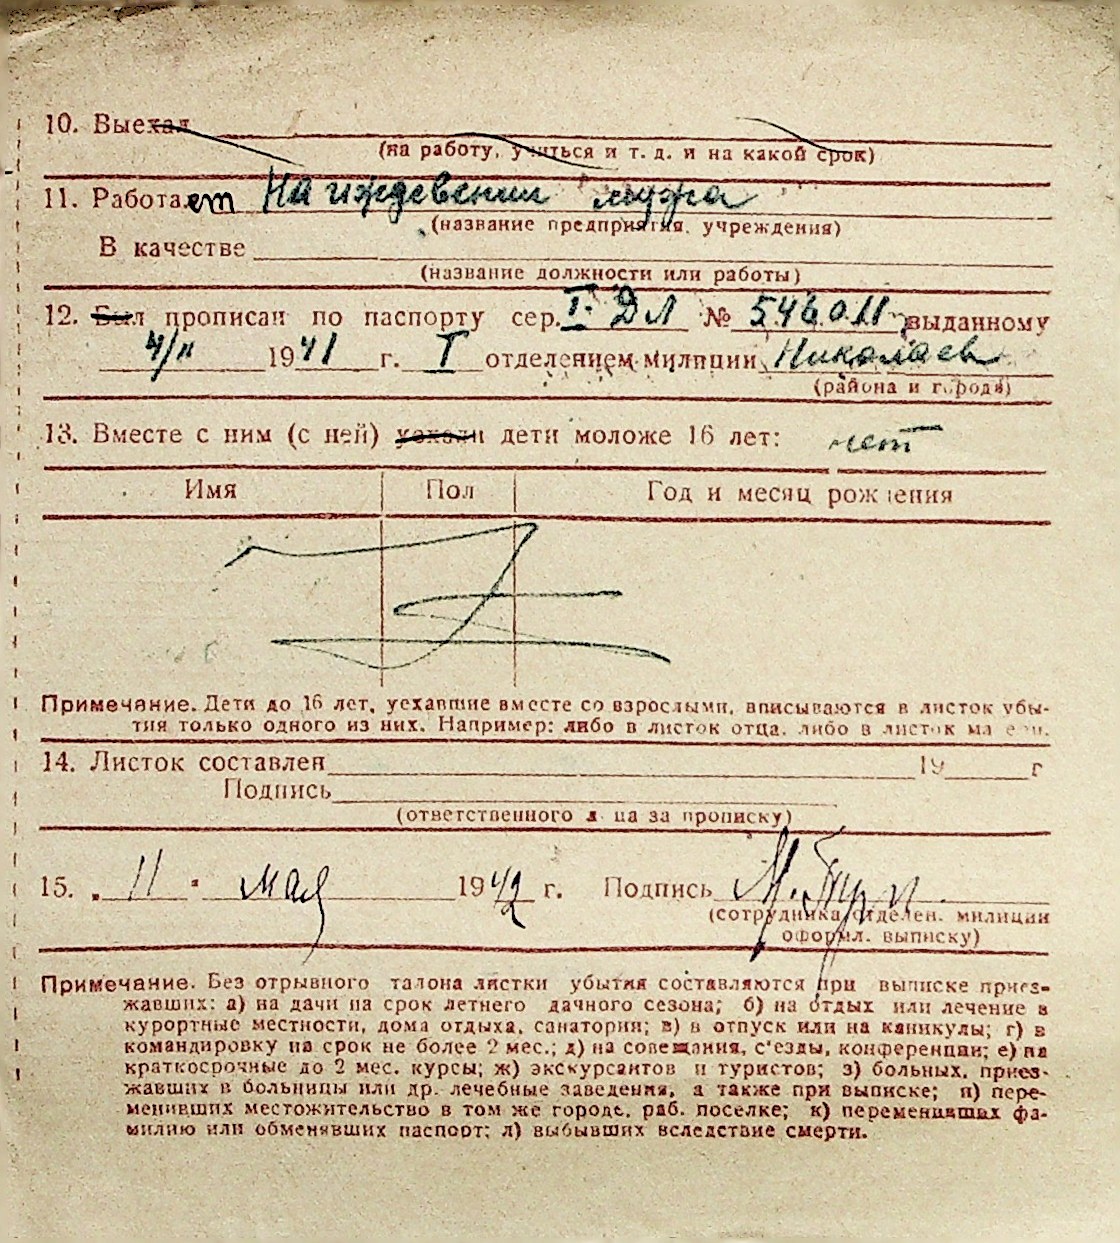 10. Выехал
(на работу, учиться и т. д. и на какой срок)
11. Работает На иждевении мужа
(название предприятия, учреждения)
В качестве
(название должности или работы)
12. Был прописан по паспорту сер. I-ДЛ № 546011 выданному
4/II 1941 г. I отделением милиции Николаев
(района и города)
13. Вместе с ним (с ней) уехали дети моложе 16 лет: нет
Имя Пол Год и месяц рождения
Примечание. Дети до 16 лет, уехавшие вместе со взрослыми, вписываются в листок убы-
тия только одного из них. Например: либо в листок отца, либо в листок матери.
14. Листок составлен 19 г
Подпись
(ответственного лица за прописку)
15. „11" мая 1942 г. Подпись
(сотрудника отделен. милиции
оформл. выписку)
Примечание. Без отрывного талона листки убытия составляются при выписке приез-
жавших: а) на дачи на срок летнего дачного сезона; б) на отдых или лечение в
курортные местности, дома отдыха, санатории; в) в отпуск или на каникулы; г) в
командировку на срок не более 2 мес.; д) на совещания, с'езды, конференции; е) на
краткосрочные до 2 мес. курсы; ж) экскурсантов и туристов; з) больных, приез-
жавших в больницы или др. лечебные заведения, а также при выписке; и) пере-
менивших местожительство в том же городе, раб. поселке; к) переменивших фа-
милию или обменявших паспорт; л) выбывших вследствие смерти.